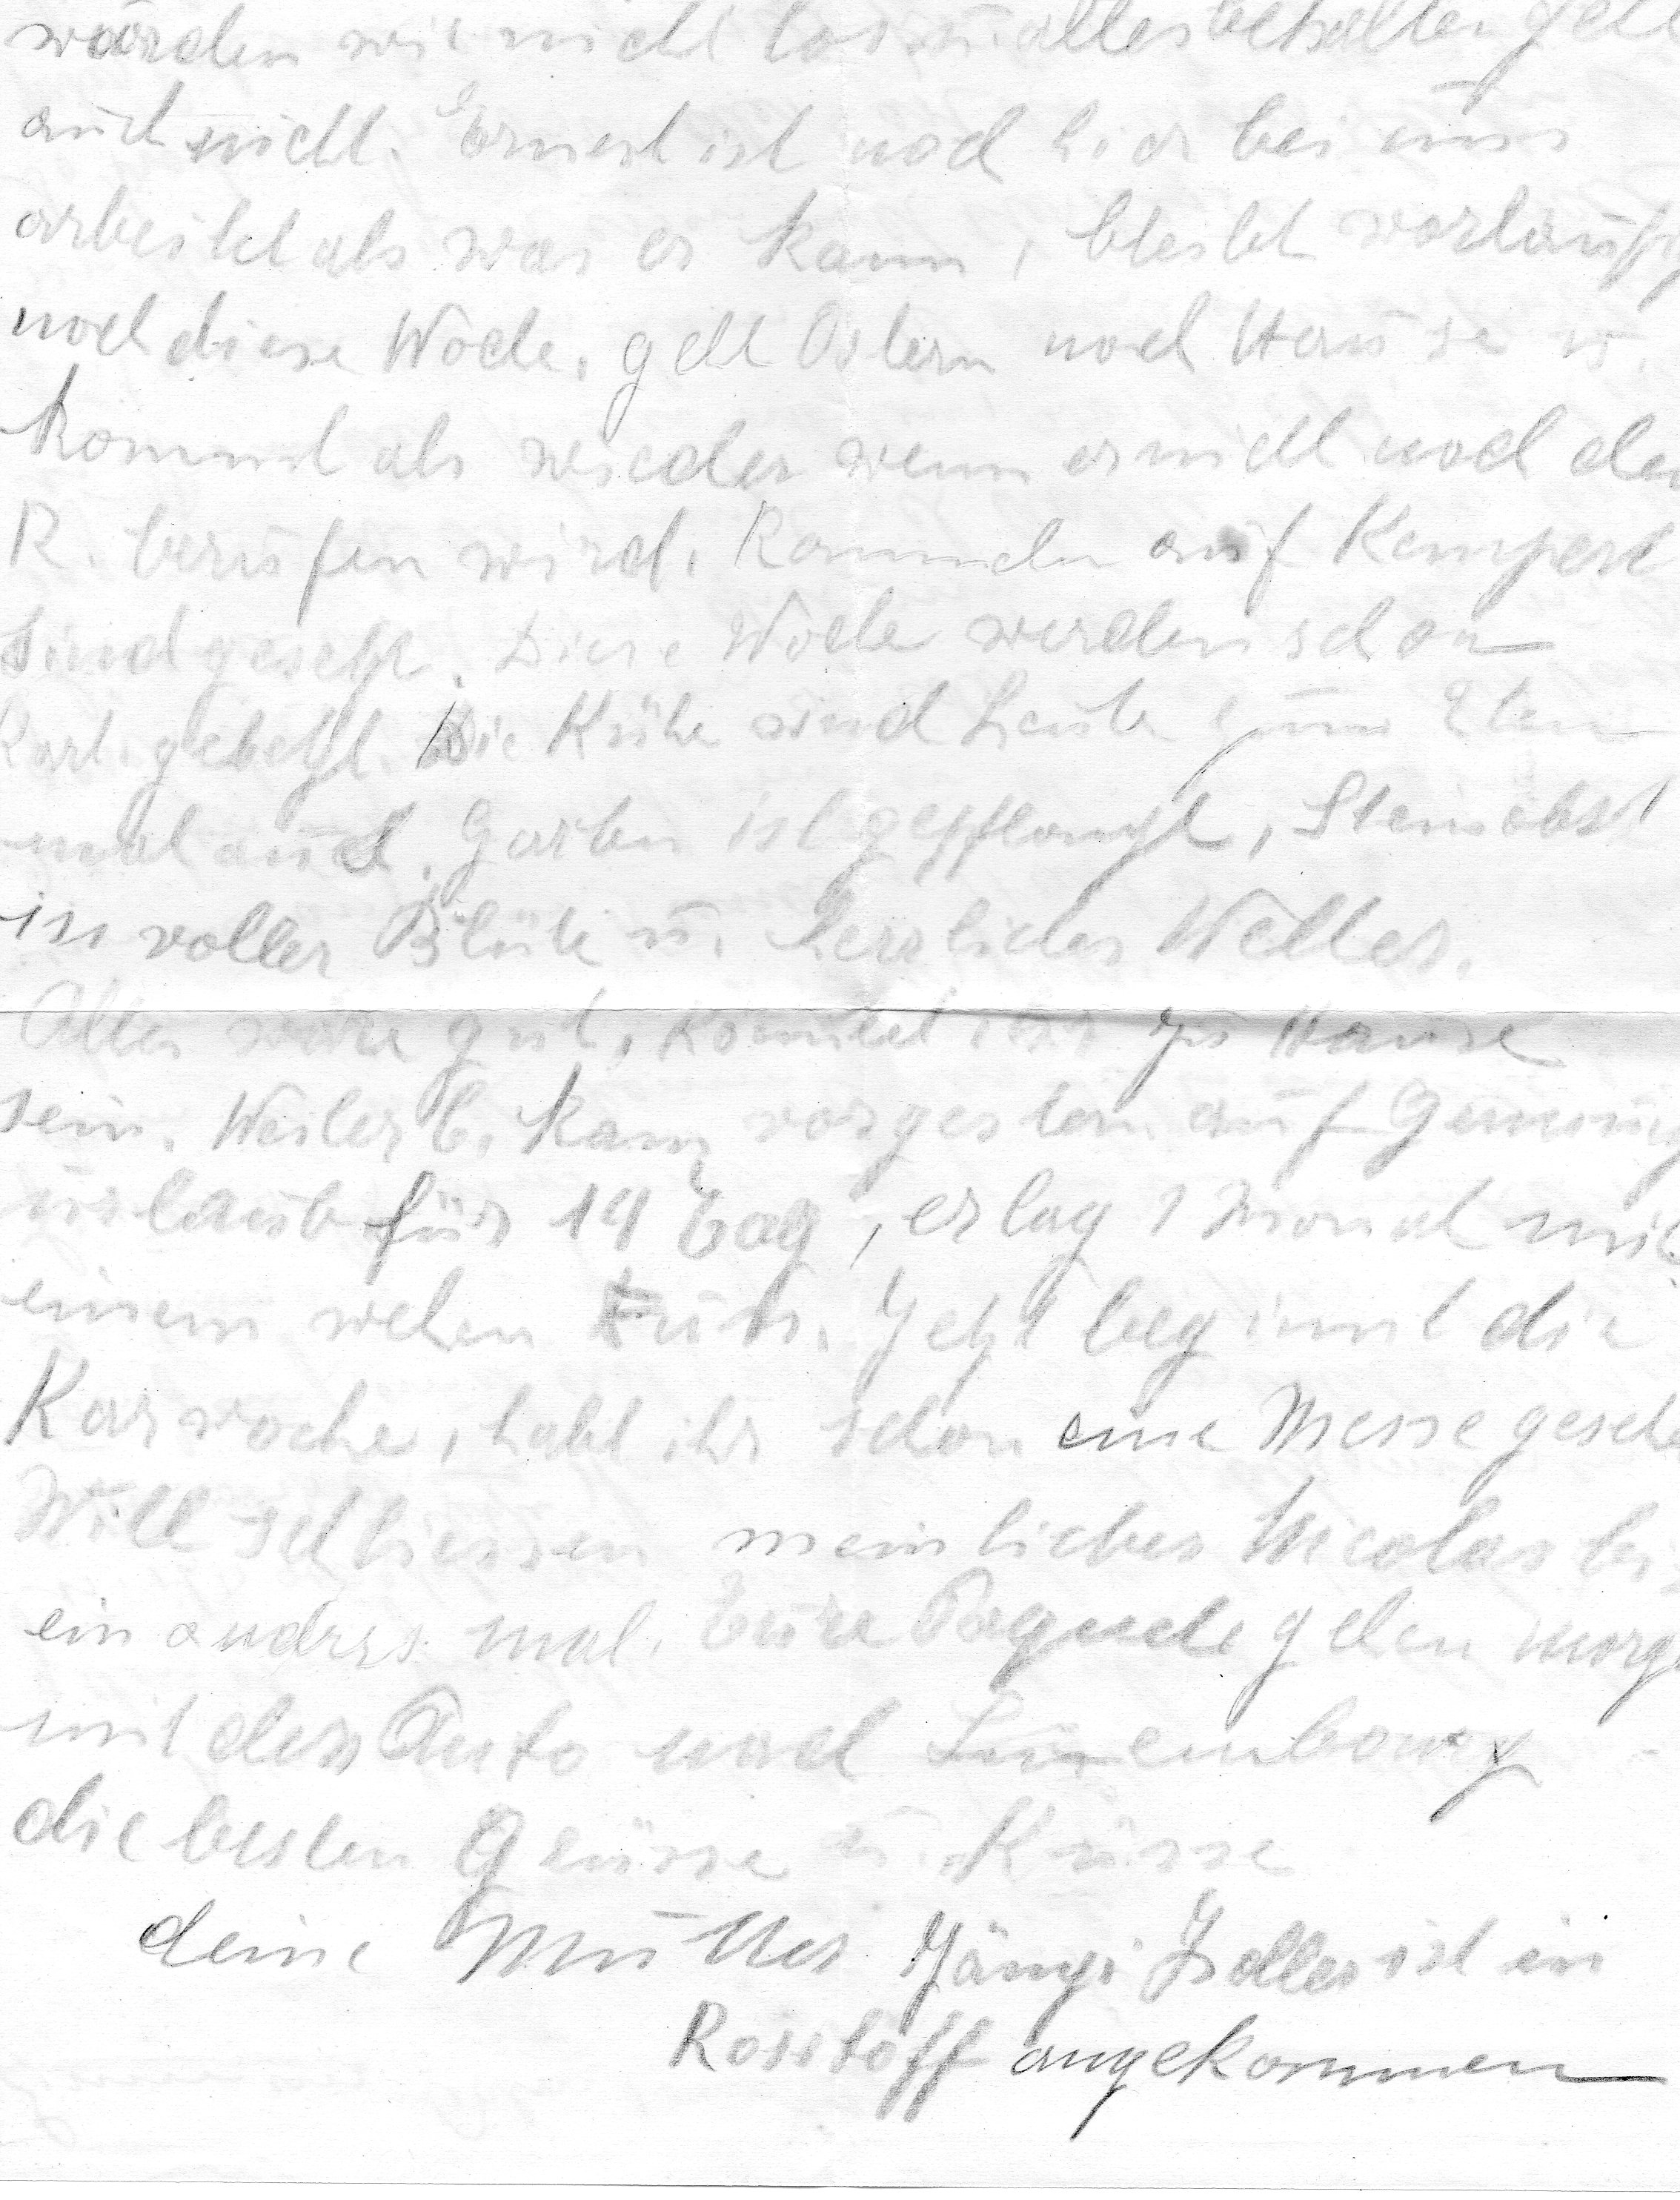 würden wir nicht los u. alles behalten geht
auch nicht. Ernest ist noch hier bei uns
arbeitet als was er kann, bleibt vorläufig
noch diese Woche, geht Ostern nach Hause u.
kommt als wieder wenn er nicht nach dem
R. berufen wird. auf Kempert
sind gesetzt. Diese Woche werden schon
Kart. gesetzt. Die Kühe sind heute zum 2ten
mal auch. Garten ist gepflanzt, Steinobst
in voller Blüte u. herrliches Wetter.
Alles wäre gut, könntet ihr zu Hause
sein. Weiler b. kam vorgestern auf Genesung
urlaub für 14 Tag, er lag 1 Monat mit
einem wehen Fuss. Jetzt beginnt die
Karwoche, habt ihr schon eine Messe geseh
Will schliessen mein lieber Nicolas bis
ein andres mal. Eure Paquete gehen morg
mit dem Auto nach Luxembourg
die besten Grüsse u. Küsse
deine Mutter Jängi Zeller ist in
Rosstoff angekommen